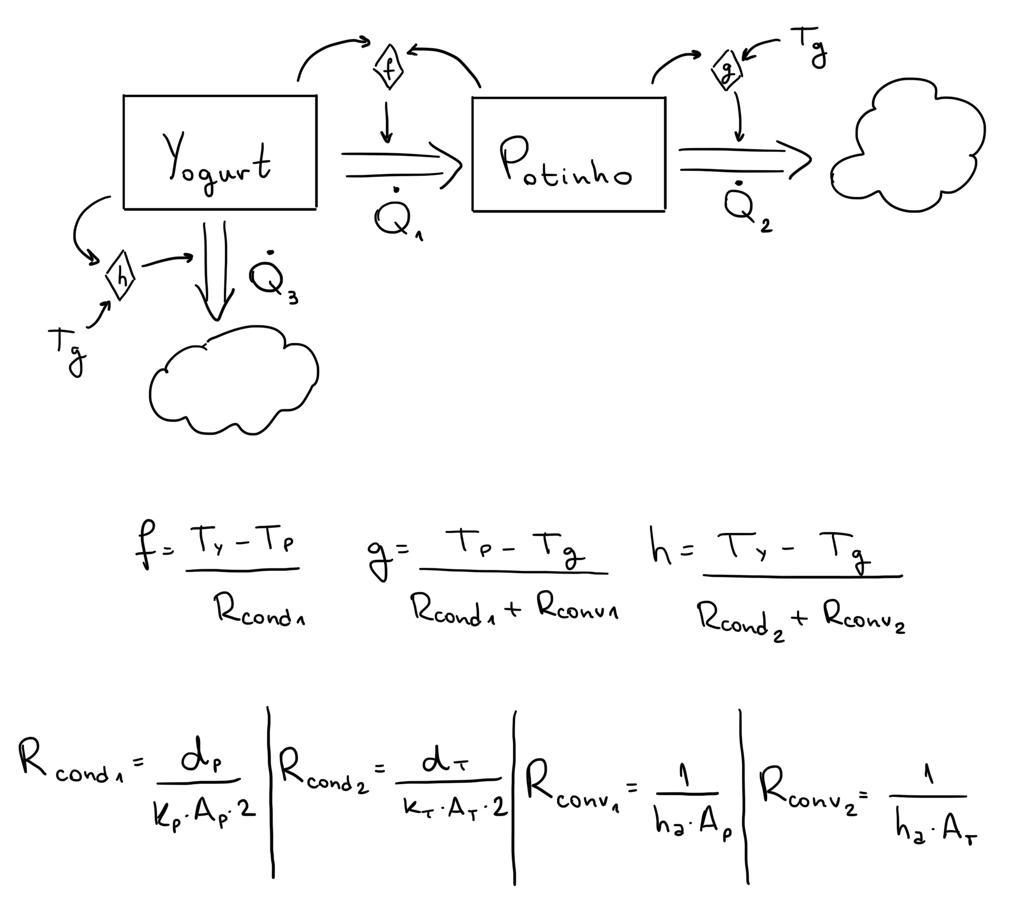 f
g
T_g
Yogurt
Potinho
Q̇₁
Q̇₂
h
Q̇₃
T_g
f = (T_Y - T_P) / R_cond₁
g = (T_P - T_g) / (R_cond₁ + R_conv₁)
h = (T_Y - T_g) / (R_cond₂ + R_conv₂)
R_cond₁ = d_P / (k_P · A_P · 2)
R_cond₂ = d_T / (k_T · A_T · 2)
R_conv₁ = 1 / (h_a · A_P)
R_conv₂ = 1 / (h_a · A_T)